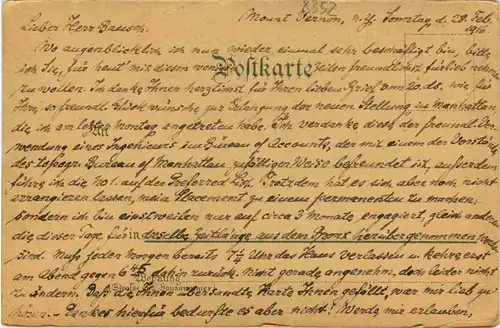 8352
Mount Vernon, N.Y. Sonntag d. 28. Feb. 1916.
Lieber Herr Bausch.
Wo augenblicklich ich nur wieder einmal sehr beschäftigt bin, bitte
ich Sie, für heut' mit diesen wenigen Zeilen freundlichst fürlieb nehmen
Postkarte
zu wollen. Ich danke Ihnen herzlichst für Ihren lieben Brief vom 20. ds. wie für
Ihre so freundl. Glückwünsche zur Erlangung der neuen Stellung in Manhattan,
die ich am letzten Montag angetreten habe. Ich verdanke dies der freundl. Ver-
wendung eines Ingenieurs im Bureau of Accounts, der mit einem der Vorstände
des topogr. Bureau of Manhattan zufälligen Weise befreundet ist, ausserdem
führe ich die No 1. auf der Preferred List. Trotzdem hat es sich aber noch nicht
arrangieren lassen, mein Placement zu einem permanenten zu machen,
sondern ich bin einstweilen nur auf circa 3 Monate engagiert, gleich andern
die dieser Tage für in dieselbe Zeitlänge aus dem Bronx herübergenommen
sind. Muss jeden Morgen bereits 7 1/2 Uhr das Haus verlassen u. kehre erst
am Abend gegen 6 dahin zurück. Nicht gerade angenehm, doch leider nicht
zu ändern. Daß die Ihnen übersandte Karte Ihnen gefällt, war mir lieb zu
hören. Dankes hierfür bedurfte es aber nicht! Werde mir erlauben,